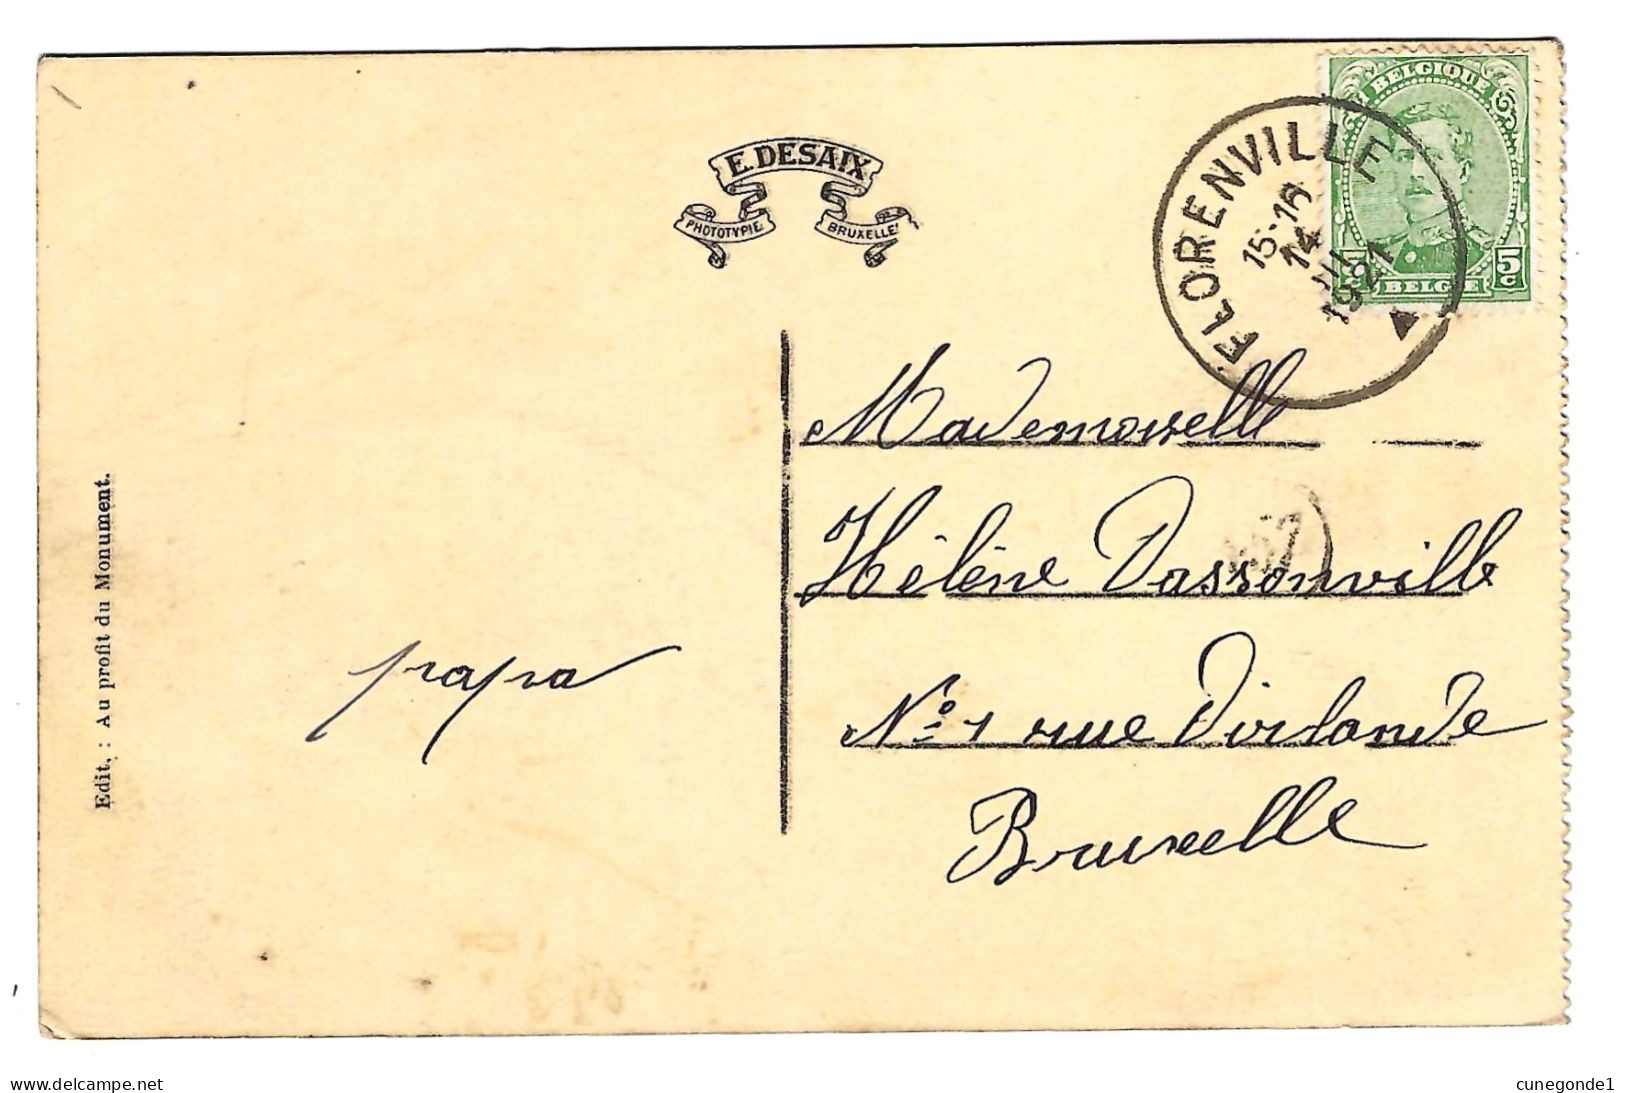 E. DESAIX
PHOTOTYPIE
BRUXELLES
BELGIQUE
5c
BELGIE
FLORENVILLE
15-16
14
1921
Edit. : Au profit du Monument.
papa
Mademoiselle
Hélène Dassonville
No 1 rue Dirlande
Bruxelle
www.delcampe.net
cunegonde1